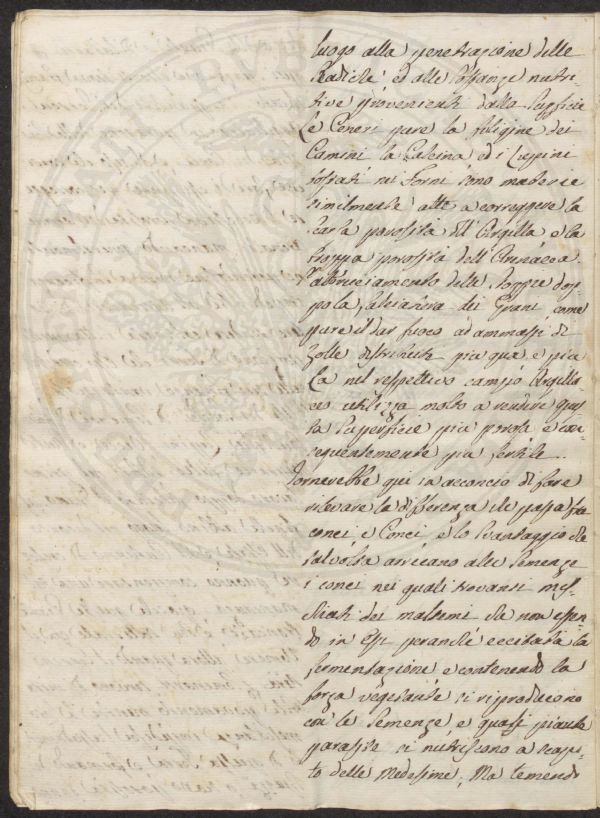 luogo alla penetrazione delle
Radiche ed alle Sostanze nutri-
tive provenienti dalla Supficie
Le Ceneri pure la filigine dei
Camini la Calcina ed i Lupini
tostati nei Forni sono materie
similmente atte a correggere la
scarsa porosità dell'Argilla e la
troppa porosità dell'Arenacea.
L'abbruciamento delle stoppie dop
po la falciatura dei Grani come
pure il dar fuoco ad ammassi di
Zolle distribuite più qua e più
la nel respettivo campo Argilla
ceo utilizza molto a rendere ques
ta superficie più porosa e con
seguentemente più fertile.
Tornerebbe qui in acconcio di fare
rilevare la differenza che passa fra
conci e Conci e lo svantaggio che
talvolta arrecano alle Semenze
i conci nei quali trovansi mes-
chiati dei malsemi che non essen
do in Essi peranche eccitata la
fermentazione e contenendo la
forza vegetante si riproducono
con le Semenze e quasi piante
parasite si nutriscono a scapi-
to delle Medesime, Ma temendo